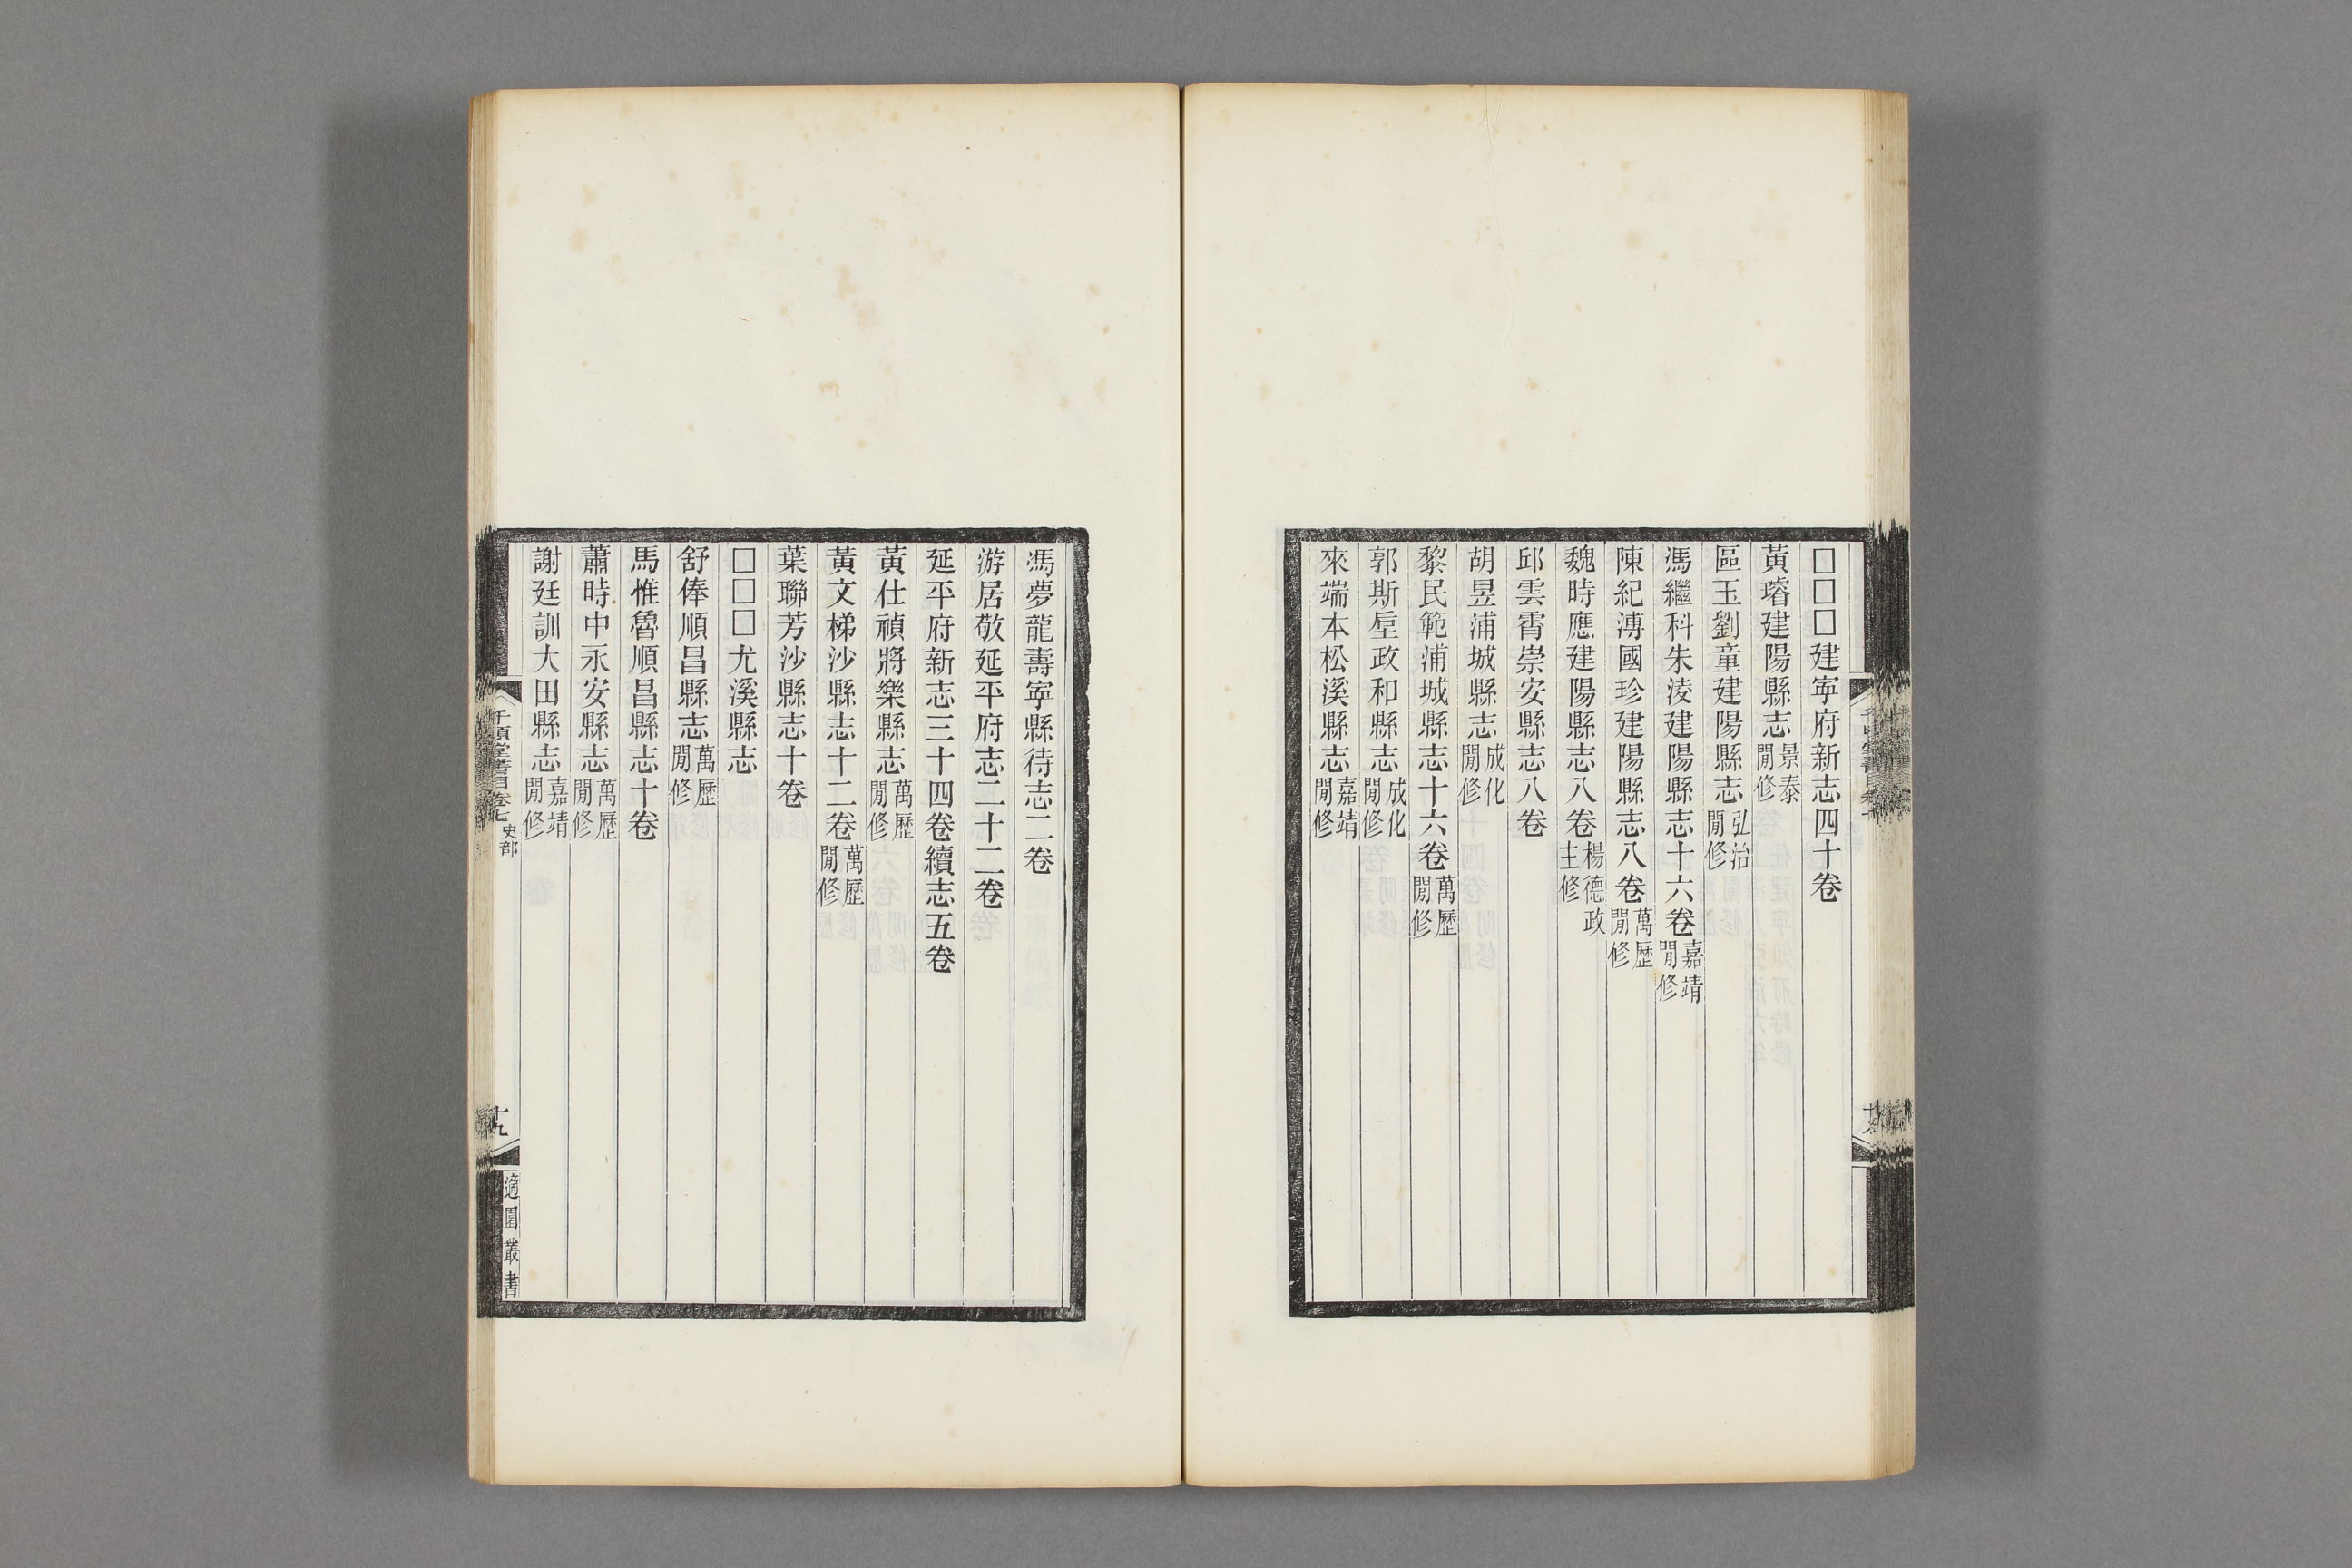 □□□建寕府新志四十卷
黃璿建陽縣志景泰閒修
區玉劉童建陽縣志弘治閒修
馮繼科朱淩建陽縣志十六卷嘉靖閒修
陳紀溥國珍建陽縣志八卷萬歷閒修
魏時應建陽縣志八卷楊德政主修
邱雲霄崇安縣志八卷
胡昱浦城縣志成化閒修
黎民範浦城縣志十六卷萬歷閒修
郭斯垕政和縣志成化閒修
來端本松溪縣志嘉靖閒修
馮夢龍壽寕縣待志二卷
游居敬延平府志二十二卷
延平府新志三十四卷續志五卷
黃仕禎將樂縣志萬歷閒修
黃文梯沙縣志十二卷萬歷閒修
葉聯芳沙縣志十卷
□□□尤溪縣志
舒俸順昌縣志萬歷閒修
馬惟魯順昌縣志十卷
蕭時中永安縣志萬歷閒修
謝廷訓大田縣志嘉靖閒修
千頃堂書目卷七 史部
十九
適園叢書